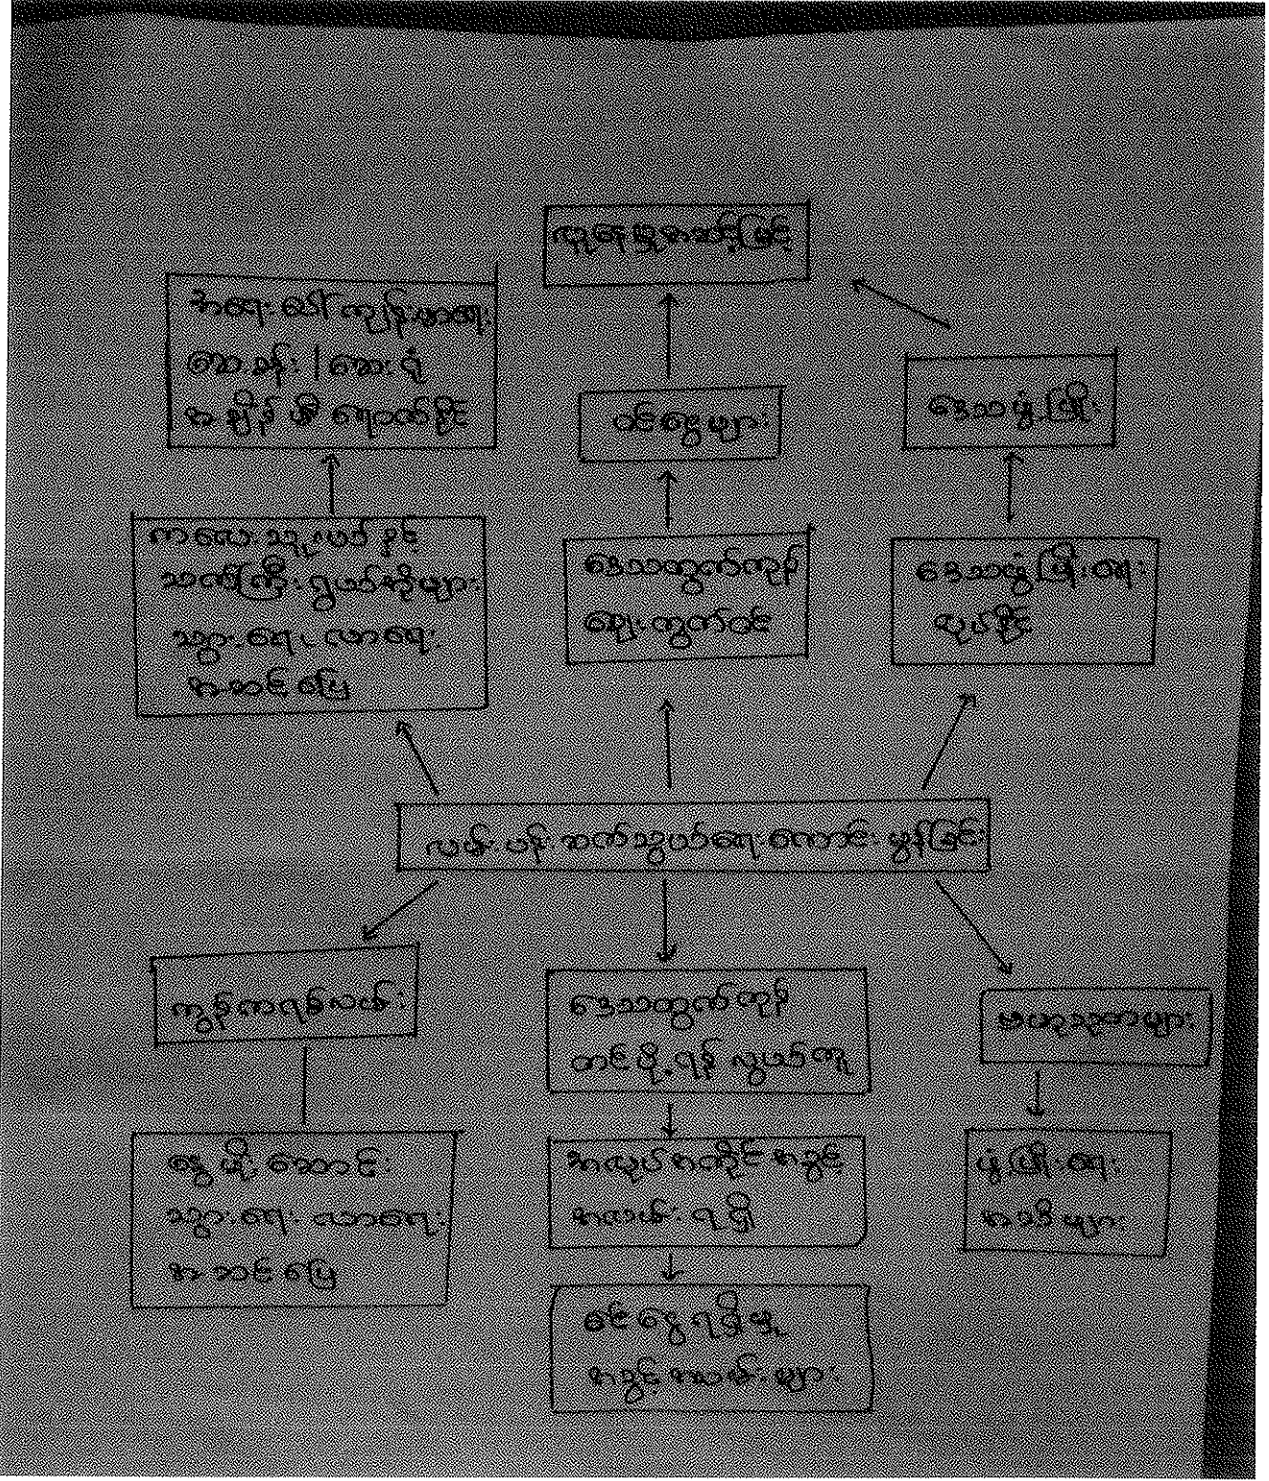 လူနေမှုအဆင့်မြင့်
အရေးပေါ်ကျန်းမာရေး
ဆေးခန်း / ဆေးရုံ
အချိန်မီ ရောက်နိုင်
ဝင်ငွေများ
ဒေသဖွံ့ဖြိုး
ကလေးသူငယ်နှင့်
သက်ကြီးရွယ်အိုများ
သွားရေး၊ လာရေး
အဆင်ပြေ
ဒေသထွက်ကုန်
ဈေးကွက်ဝင်
ဒေသဖွံ့ဖြိုးရေး
လုပ်နိုင်
လမ်းပန်းဆက်သွယ်ရေးကောင်းမွန်ခြင်း
ကွန်ကရစ်လမ်း
ဒေသထွက်ကုန်
တင်ပို့ရန် လွယ်ကူ
ဗဟုသုတများ
နွေ မိုး ဆောင်း
သွားရေး လာရေး
အဆင်ပြေ
အလုပ်အကိုင်အခွင့်
အလမ်းရရှိ
ဖွံ့ဖြိုးရေး
အသိများ
ဝင်ငွေရရှိမှု
အခွင့်အလမ်းများ